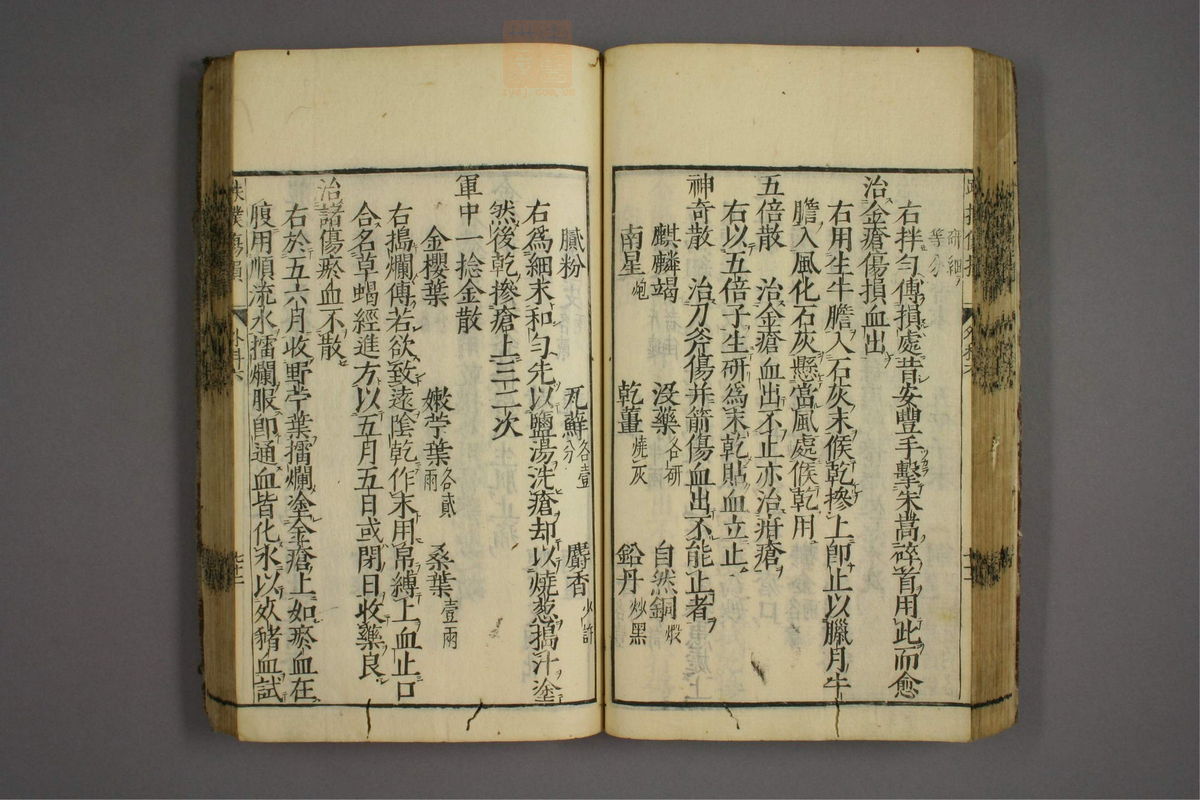 研細
等分
右拌勻傅損處昔安豐手擊朱嵩碎首用此而愈
治金瘡傷損血出
右用生牛膽入石灰末候乾摻上卽止以臘月牛
膽入風化石灰懸當風處候乾用
五倍散 治金瘡血出不止亦治疳瘡
右以五倍子生研爲末乾貼血立止
神奇散 治刀斧傷并箭傷血出不能止者
麒麟竭 沒藥各研 自然銅煆
南星炮 乾薑燒灰 鉛丹炒黑
膩粉 瓦蘚各壹分 麝香少許
右爲細末和勻先以鹽湯洗瘡却以燒葱搗汁塗
然後乾摻瘡上三二次
軍中一捻金散
金櫻葉 嫩苧葉各貳兩 桑葉壹兩
右搗爛傅若欲致遠陰乾作末用帛縛上血止口
合名草蝎經進方以五月五日或閉日收藥良
治諸傷瘀血不散
右於五六月收野苧葉擂爛塗金瘡上如瘀血在
腹用順流水擂爛服卽通血皆化水以效豬血試
跌撲傷損 外科六 七十二